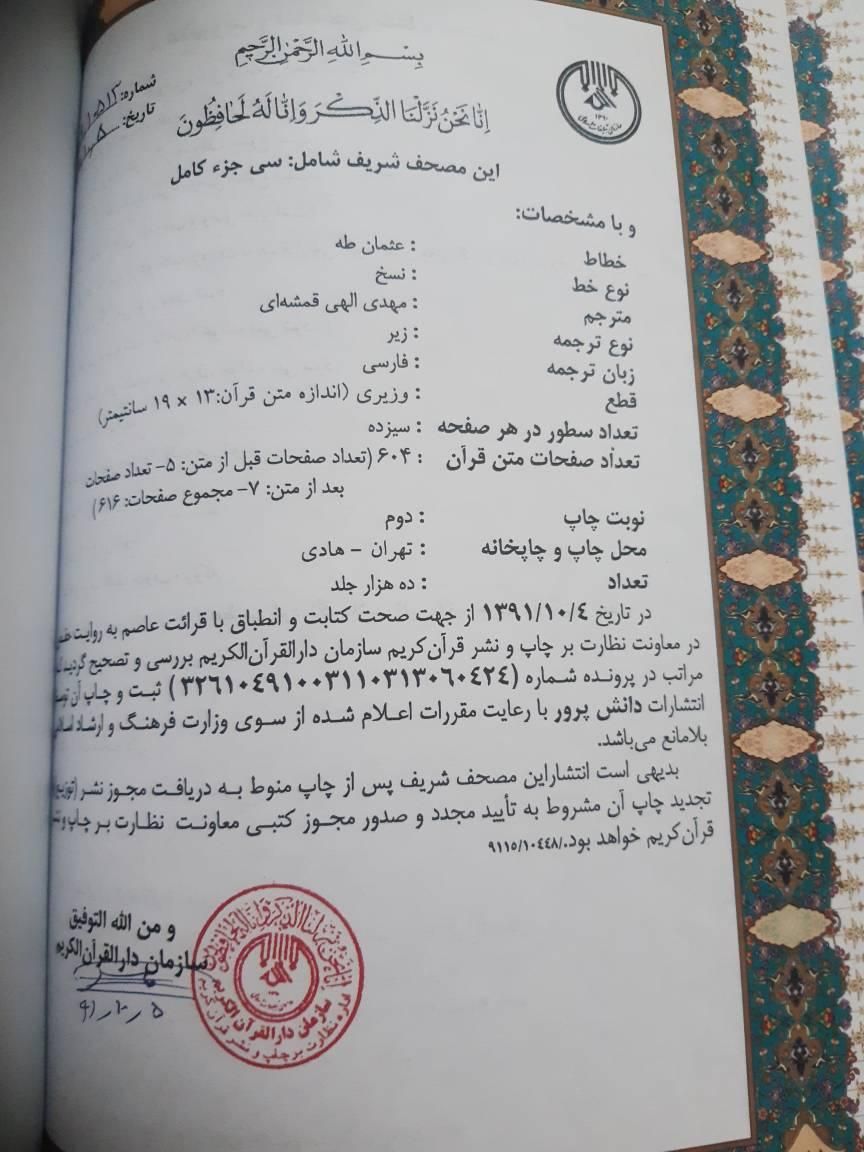 بِسْمِ اللهِ الرَّحْمٰنِ الرَّحیمِ
شماره:
تاریخ:
اِنّا نَحْنُ نَزَّلْنَا الذِّكْرَ وَاِنّا لَهُ لَحافِظُونَ
این مصحف شریف شامل: سی جزء کامل
و با مشخصات:
خطاط : عثمان طه
نوع خط : نسخ
مترجم : مهدی الهی قمشه‌ای
نوع ترجمه : زیر
زبان ترجمه : فارسی
قطع : وزیری (اندازه متن قرآن:۱۳ × ۱۹ سانتیمتر)
تعداد سطور در هر صفحه : سیزده
تعداد صفحات متن قرآن : ۶۰۴ (تعداد صفحات قبل از متن: ۵- تعداد صفحات
بعد از متن: ۷- مجموع صفحات: ۶۱۶)
نوبت چاپ : دوم
محل چاپ و چاپخانه : تهران - هادی
تعداد : ده هزار جلد
در تاریخ ۱۳۹۱/۱۰/٤ از جهت صحت کتابت و انطباق با قرائت عاصم به روایت
در معاونت نظارت بر چاپ و نشر قرآن‌کریم سازمان دارالقرآن‌الکریم بررسی و تصحیح گردید
مراتب در پرونده شماره (۳۲٦۱۰٤۹۱۰۰۳۱۱۰۳۱۳۰٦۰٤۲٤) ثبت و چاپ آن
انتشارات دانش پرور با رعایت مقررات اعلام شده از سوی وزارت فرهنگ و ارشاد
بلامانع می‌باشد.
بدیهی است انتشاراین مصحف شریف پس از چاپ منوط به دریافت مجوز نشر
تجدید چاپ آن مشروط به تأیید مجدد و صدور مجوز کتبی معاونت نظارت بر چاپ و
قرآن‌کریم خواهد بود./۹۱۱۵/۱۰٤٤۸
و من الله التوفیق
سازمان دارالقرآن‌الکریم
۹۱٫۱۰٫۵
انا نحن نزلنا الذکر وانا له لحافظون
سازمان دارالقرآن الکریم
اداره نظارت بر چاپ و نشر قرآن کریم